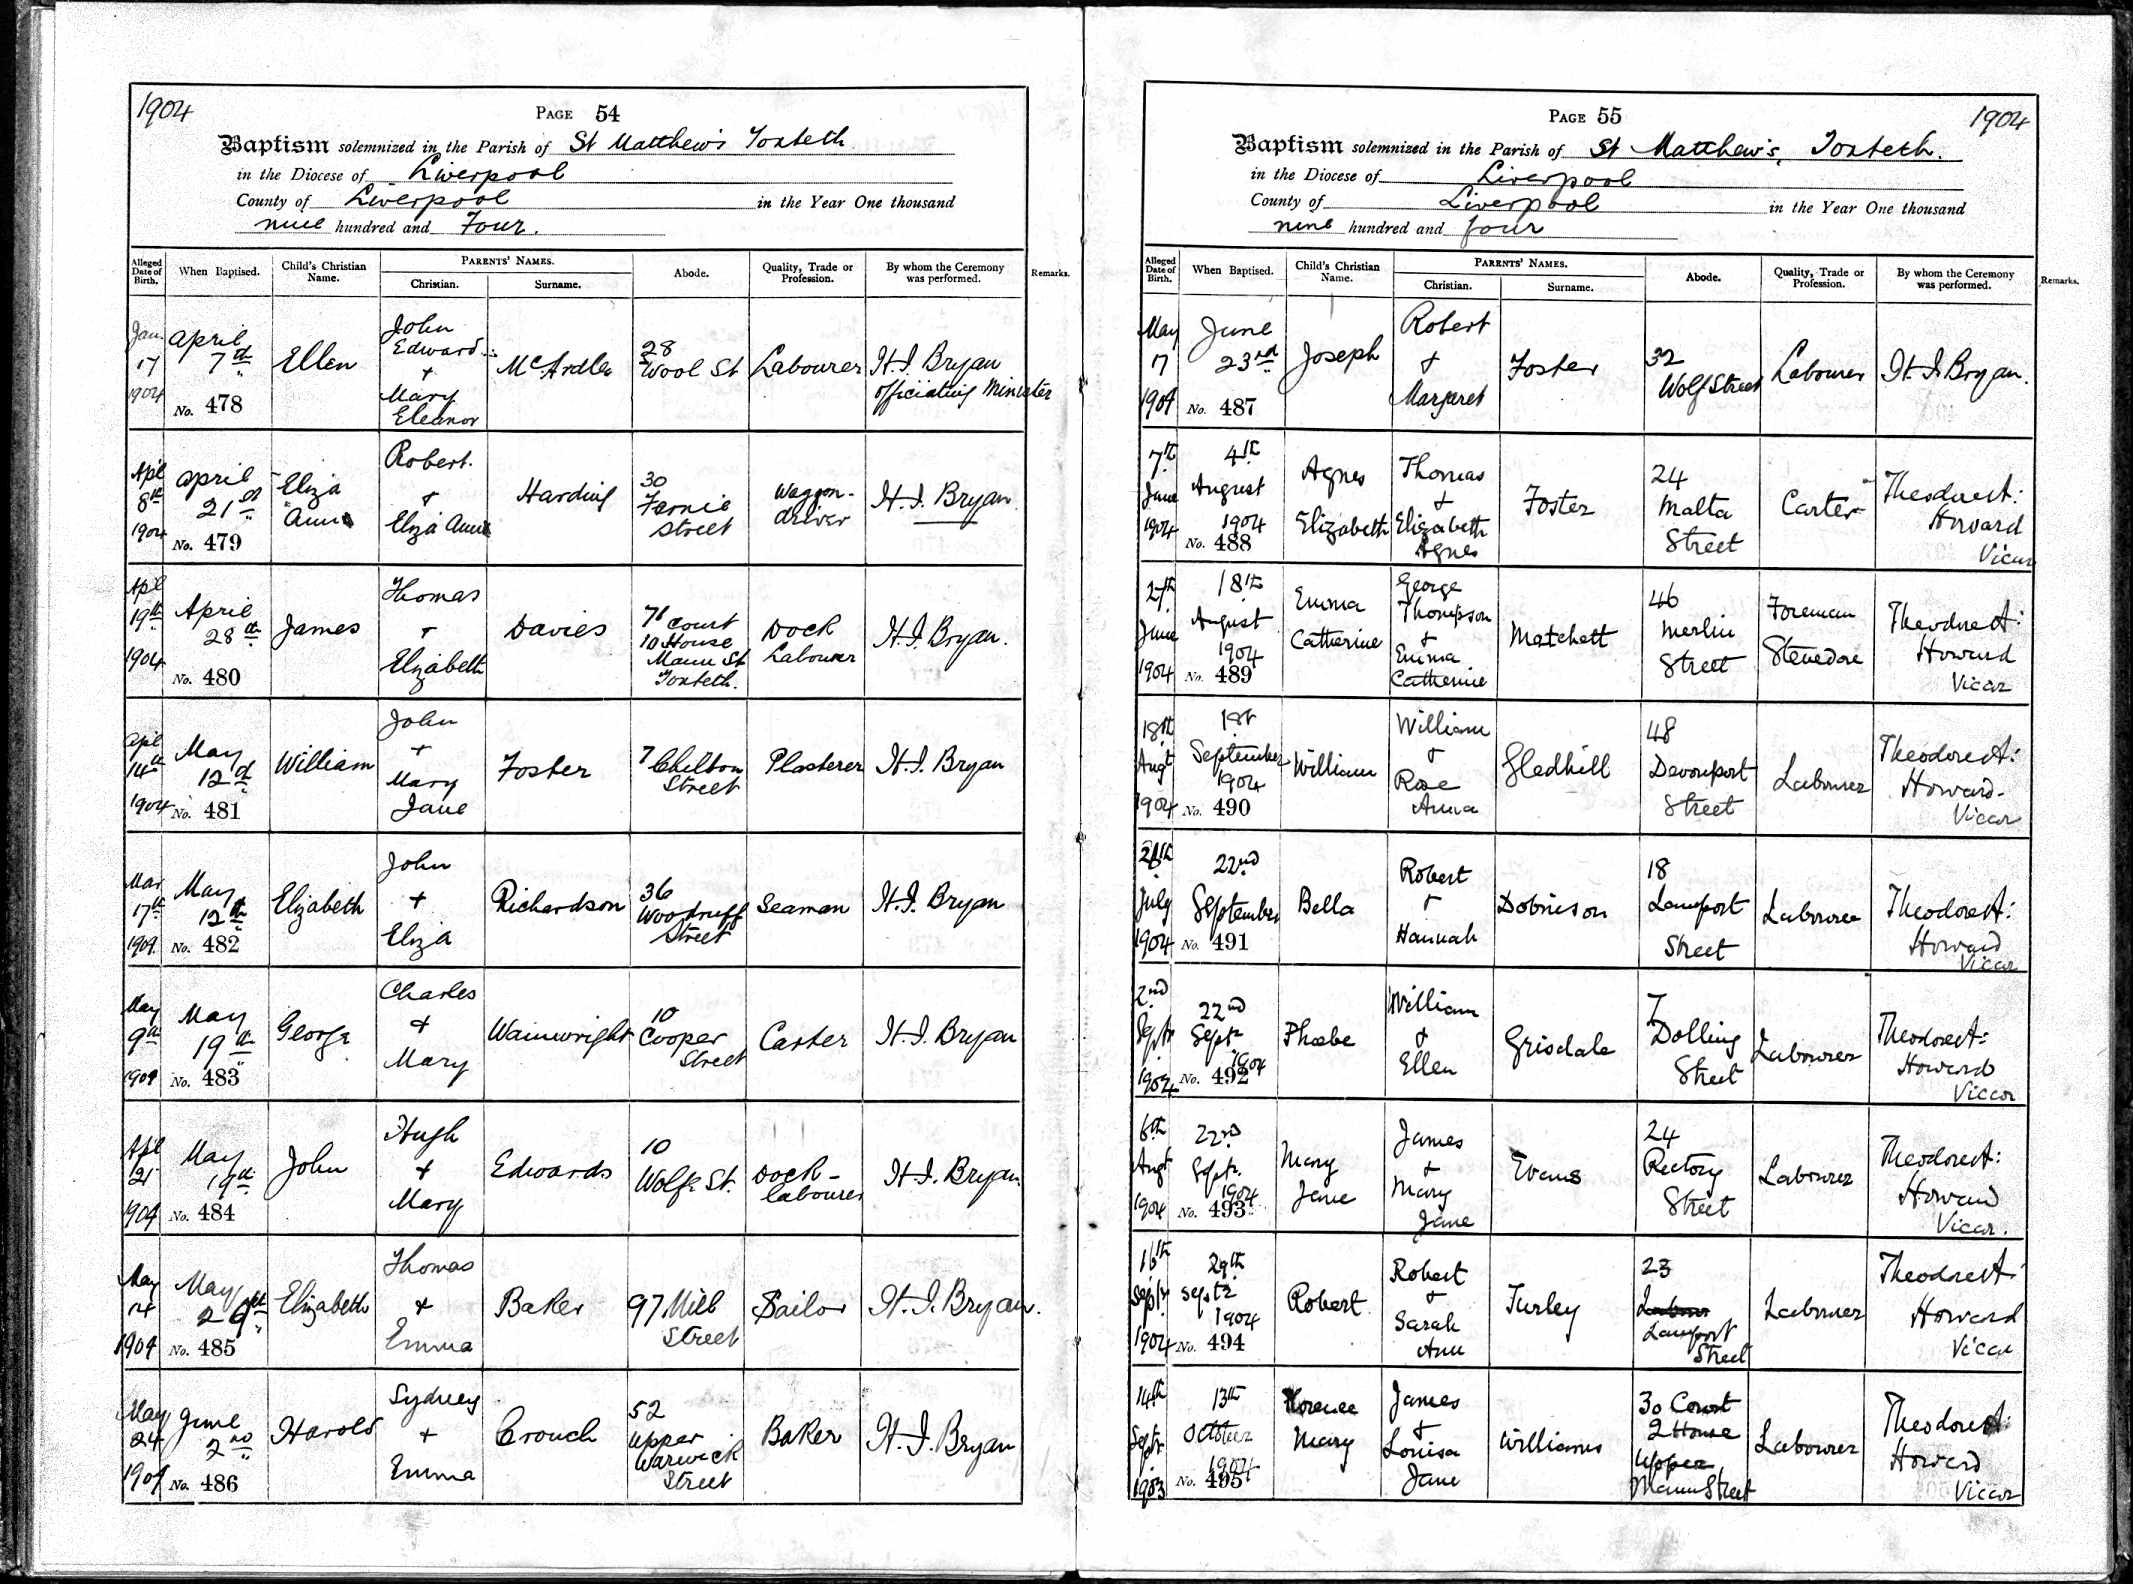 1904
PAGE 54
Baptism solemnized in the Parish of St Matthew's Toxteth
in the Diocese of Liverpool
County of Liverpool in the Year One thousand
nine hundred and Four.
Alleged Date of Birth. When Baptised. Child's Christian Name. PARENTS' NAMES. Christian. Surname. Abode. Quality, Trade or Profession. By whom the Ceremony was performed. Remarks.
Jan. 17 1904 April 7th No. 478 Ellen John Edward + Mary Eleanor McArdle 28 Wool St Labourer H.I. Bryan officiating Minister
Apl 8th 1904 April 21st No. 479 Eliza Ann Robert + Eliza Ann Harding 30 Fernie Street Waggon-driver H.I. Bryan
Apl 19th 1904 April 28th No. 480 James Thomas + Elizabeth Davies 71 Court 10 House Mann St Toxteth. Dock Labourer H.I. Bryan.
Apl 14th 1904 May 12th No. 481 William John + Mary Jane Foster 7 Chilton Street Plasterer H.I. Bryan
Mar 17th 1904 May 12th No. 482 Elizabeth John + Eliza Richardson 36 Woodruff Street Seaman H.I. Bryan
May 9th 1904 May 19th No. 483 George Charles + Mary Wainwright 10 Cooper Street Carter H.I. Bryan
Apl 21 1904 May 19th No. 484 John Hugh + Mary Edwards 10 Wolfe St. Dock-labourer H.I. Bryan
May 14 1904 May No. 485 Elizabeth Thomas + Emma Baker 97 Mill Street Sailor H.I. Bryan.
May 24 1904 June 2nd No. 486 Harold Sydney + Emma Crouch 52 Upper Warwick Street Baker H.I. Bryan
PAGE 55
1904
Baptism solemnized in the Parish of St Matthew's, Toxteth.
in the Diocese of Liverpool
County of Liverpool in the Year One thousand
nine hundred and four
Alleged Date of Birth. When Baptised. Child's Christian Name. PARENTS' NAMES. Christian. Surname. Abode. Quality, Trade or Profession. By whom the Ceremony was performed. Remarks.
May 17 1904 June 23rd No. 487 Joseph Robert + Margaret Foster 32 Wolf Street Labourer H.I. Bryan.
7th June 1904 4th August 1904 No. 488 Agnes Elizabeth Thomas + Elizabeth Agnes Foster 24 Malta Street Carter Theodore A: Howard Vicar
27th June 1904 18th August 1904 No. 489 Emma Catherine George Thompson + Emma Catherine Matchett 46 Merlin Street Foreman Stevedore Theodore A: Howard Vicar
18th Augt 1904 1st September 1904 No. 490 William William + Rose Anna Gledhill 48 Devonport Street Labourer Theodore A: Howard. Vicar
July 1904 22nd September No. 491 Bella Robert + Hannah Dobinson 18 Lamport Street Labourer Theodore A: Howard Vicar
2nd Septr 1904 22nd Septr 1904 No. 492 Phoebe William + Ellen Grisdale 7 Dolling Street Labourer Theodore A: Howard Vicar
6th Augt 1904 22nd Sept. 1904 No. 493 Mary Jane James + Mary Jane Evans 24 Rectory Street Labourer Theodore A: Howard Vicar.
16th Septr 1904 29th Septr 1904 No. 494 Robert Robert + Sarah Ann Turley 23 Lamport Street Labourer Theodore A: Howard Vicar
14th Septr 1903 13th October 1904 No. 495 Florence Mary James + Louisa Jane Williams 30 Court 2 House Upper Mann Street Labourer Theodore A: Howard Vicar